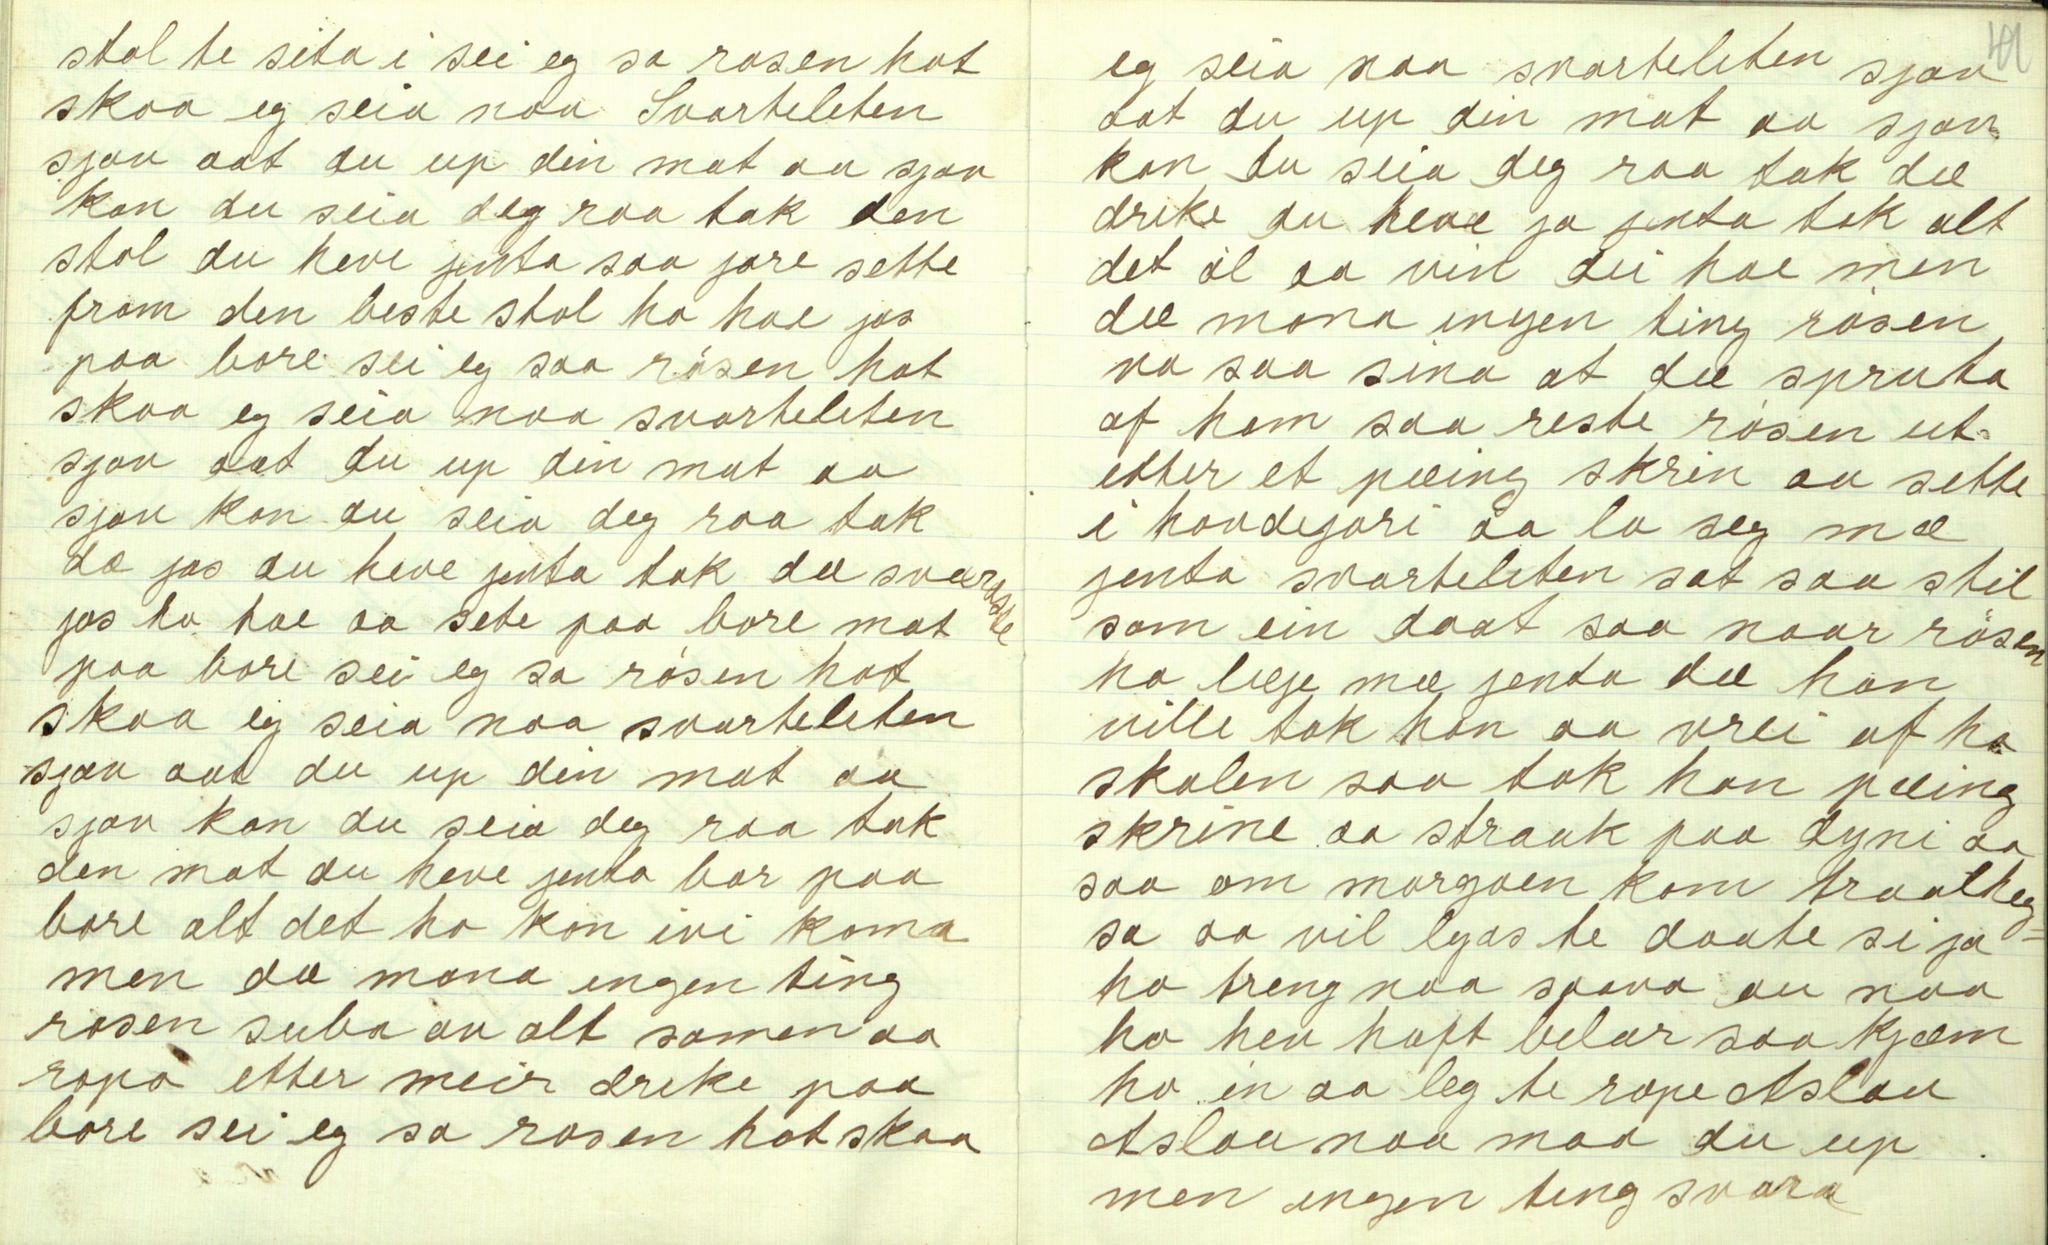 stol te sita i sei eg sa rosen hot
skaa eg seia naa Svarteleten
sjav aat du up din mat aa sjav
kan du seia deg raa tak den
stol du heve jenta saa jore sette
fram den beste stol ho hae jos
paa bore sei eg saa rösen hot
skaa eg seia naa svarteleten
sjav aat du up din mat aa
sjav kan du seia deg raa tak
dæ jos du heve jenta tok dæ sværaste
jos ho hae aa sete paa bore mat
paa bore sei eg sa rösen hot
skaa eg seia naa svarteleten
sjav aat du up din mat aa
sjav kan du seia deg raa tak
den mat du heve jenta bar paa
bore alt det ho kon ivi koma
men dæ mona ingen ting
rosen suba av alt samen aa
ropa etter meir dreke paa
bore sei eg sa rosen hot skaa
41
eg seia naa svarteleten sjav
aat du up din mat aa sjav
kan du seia deg raa tak dæ
dreke du heve ja jenta tok alt
det øl aa vin dei hae men
dæ mona ingen ting rösen
va saa sina at dæ spruta
af ham saa reste rösen ut
etter et pæing skrin aa sette
i hovdejari aa la seg mæ
jenta svarteleten sat saa stil
som ein daat saa naar rösen
ha leje mæ jenta dæ han
ville tok han aa vrei af ho
skolen saa tok han pæing
skrine aa strauk paa dyni aa
saa om morgoen kom traalheg=
sa aa vil lyas te daate si ja
ho treng naa saava au naa
ho hev haft belar saa kjæm
ho in aa leg te rope Aslau
Aslau naa maa du up
men ingen teng svara